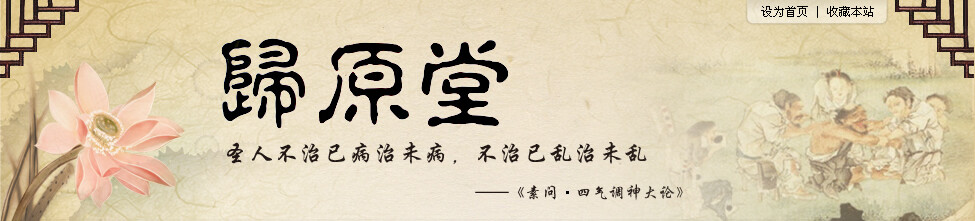 设为首页 | 收藏本站
歸原堂
圣人不治已病治未病，不治已乱治未乱
——《素问·四气调神大论》